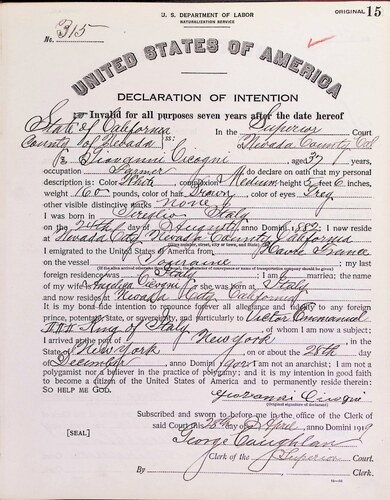 U. S. DEPARTMENT OF LABOR
NATURALIZATION SERVICE
ORIGINAL 15
No. 315
UNITED STATES OF AMERICA
DECLARATION OF INTENTION
Invalid for all purposes seven years after the date hereof
State of California
County of Nevada ss: In the Superior Court
of Nevada County, Cal
I, Giovanni Cicogni, aged 37 years,
occupation Farmer, do declare on oath that my personal
description is: Color White, complexion Medium, height 5 feet 6 inches,
weight 160 pounds, color of hair Brown, color of eyes Grey
other visible distinctive marks none
I was born in Italy
on the 24th day of August, anno Domini 1882; I now reside
at Nevada City, Nevada County, California
I emigrated to the United States of America from Havre France
on the vessel Touraine; my last
foreign residence was Italy; I am married; the name
of my wife is Cicogni; she was born at Italy
and now resides at Nevada City, California
It is my bona fide intention to renounce forever all allegiance and fidelity to any foreign
prince, potentate, state, or sovereignty, and particularly to Victor Emmanuel
III King of Italy, of whom I am now a subject;
I arrived at the port of New York, in the
State of New York, on or about the 28th day
of December, anno Domini; I am not an anarchist; I am not a
polygamist nor a believer in the practice of polygamy; and it is my intention in good faith
to become a citizen of the United States of America and to permanently reside therein:
SO HELP ME GOD.
Giovanni Cicogni
(Original signature of declarant)
Subscribed and sworn to before me in the office of the Clerk of
said Court this 28th day of April, anno Domini 1919
[SEAL]
George Caughlan
Clerk of the Superior Court.
By, Clerk.